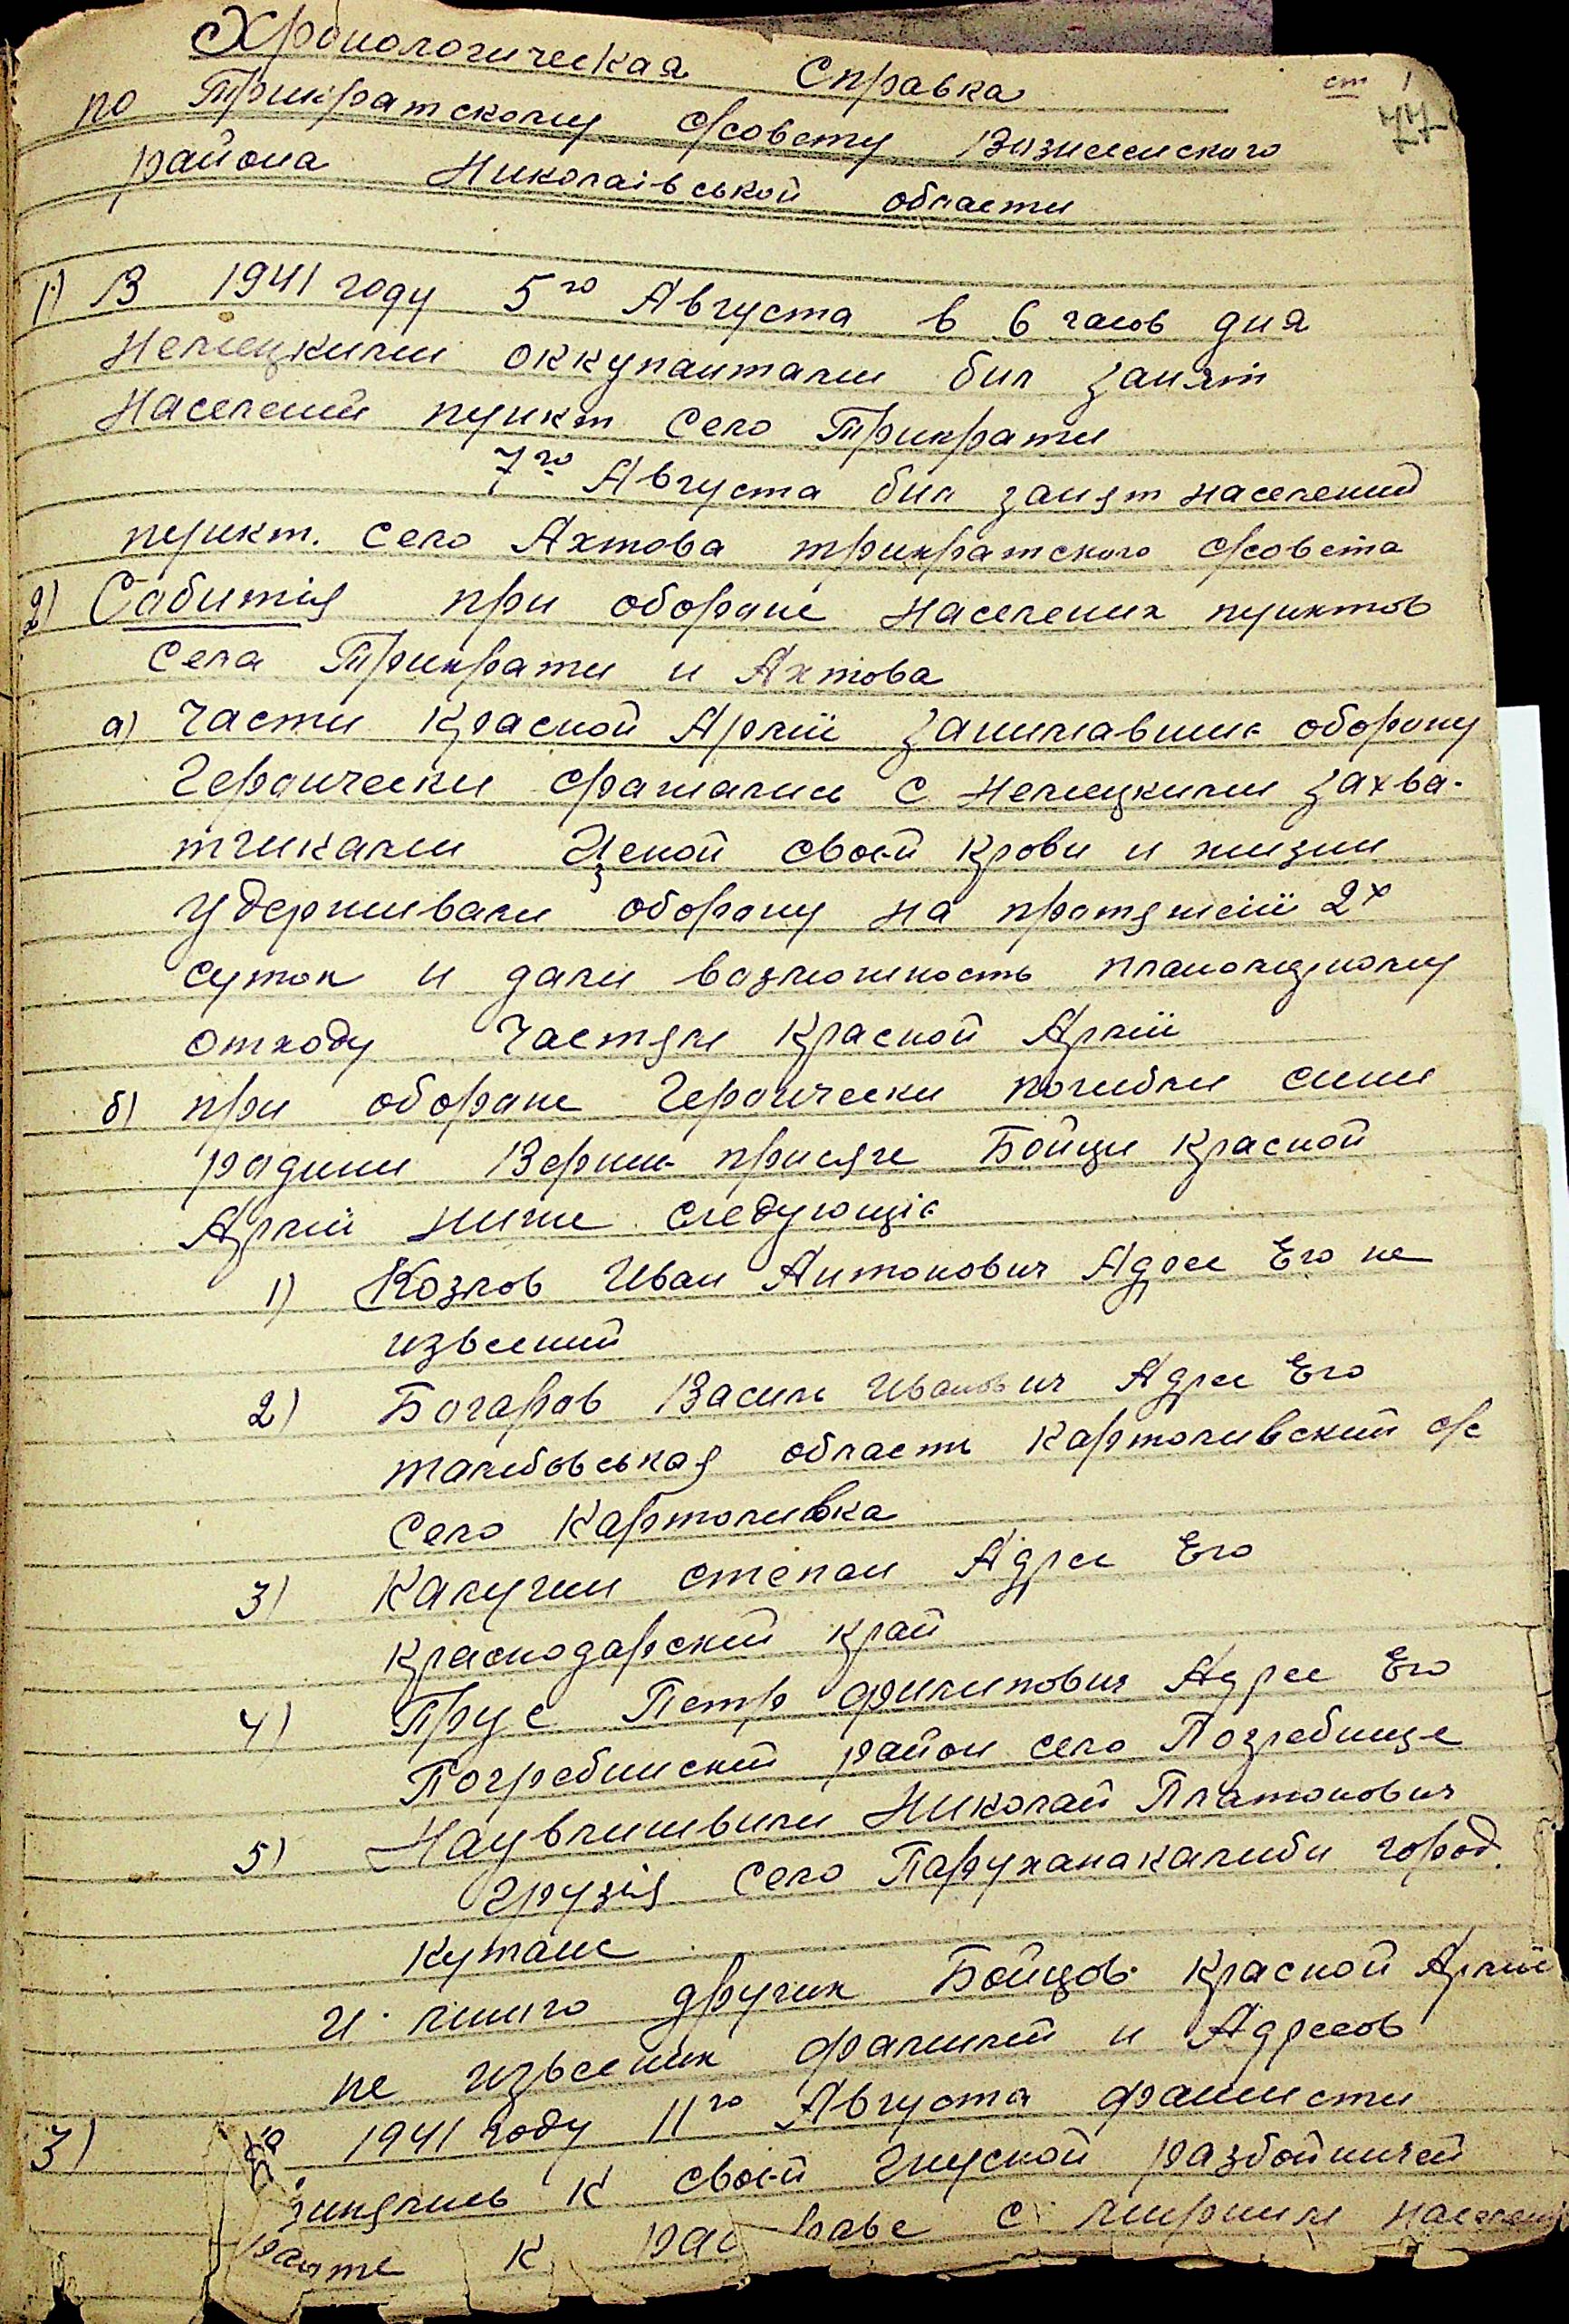 Хронологическая Справка
ст 1
77
по Трикратскому с/совету Вознесенского
района Николаівськой области
1) В 1941 году 5го Августа в 6 часов дня
Немецкими оккупантами бил занят
Населений пункт Село Трикрати
7го Августа бил занят населений
пункт. село Ахтова трикратского с/совета
2) Сабитія при обороне населених пунктов
села Трикрати и Ахтова
а) Части Красной Армії занимавшие оборону
Героически сражались с немецкими захва-
тчиками Ценой своей крови и жизни
удерживали оборону на протяжении 2х
суток и дали возможность планомерному
отходу Частям Красной Армії
б) при обороне Героически погибли сини
родини Верние присяге Бойци Красной
Армії ниже следующіе
1) Козлов Иван Антонович Адрес Его не
извесний
2) Бочаров Василь Иванович Адрес Его
тамбовськая область Картоливский с/с
Село Картоливка
3) Калугин степан Адрес Его
Краснодарский край
4) Прус Петр филипович Адрес Его
Погребиский район село Погребище
5) Наувлишвили Николай Платонович
Грузія село Паруханакалиби город.
Кутаис
и много других Бойцов Красной Армії
не извесних фамилий и Адресов
3) 1941 году 11го Августа фашисти
своей Гнусной разбойничей
к с мирним населени